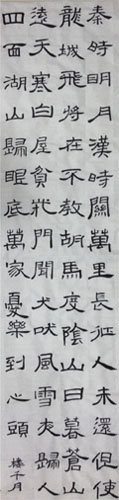 秦時明月漢時關萬里長征人未還但使
龍城飛將在不教胡馬度陰山日暮蒼山
遠天寒白屋貧柴門聞犬吠風雪夜歸人
四面湖山歸眼底萬家憂樂到心頭